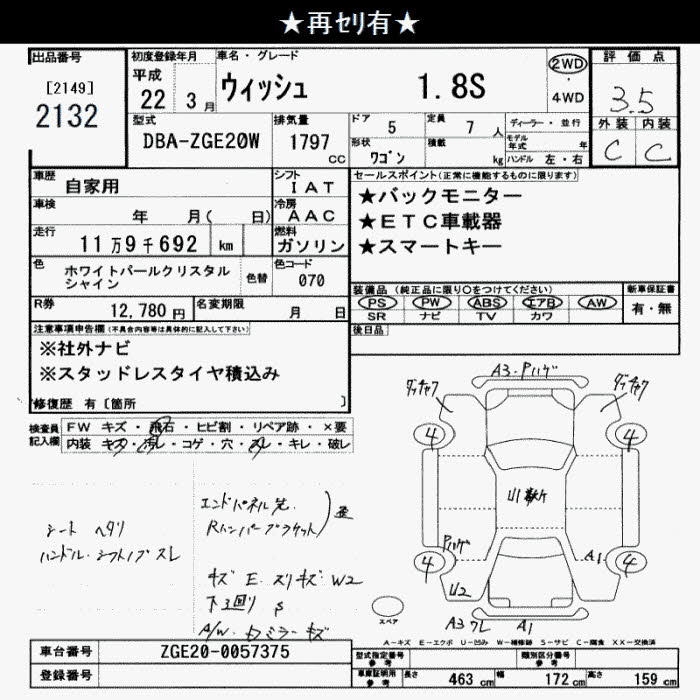 ★再セリ有★
出品番号
[2149]
2132
初度登録年月
平成
22 3月
車名・グレード
ウィッシュ 1.8S
2WD
・
4WD
評価点
3.5
外装 内装
C C
型式
DBA-ZGE20W
排気量
1797
CC
ドア 5
定員 7 人
形状 ワゴン
積載 kg
ディーラー・並行
モデル年式 年
ハンドル 左・右
車歴 自家用
シフト
IAT
車検 年 月( 日)
冷房
AAC
走行 11万9千692 km
燃料
ガソリン
色
ホワイトパールクリスタル
シャイン
色替
色コード
070
R券 12,780円
名変期限 月 日
セールスポイント(正常に機能するものに限ります)
★バックモニター
★ETC車載器
★スマートキー
装備品 (純正品に限り○をつけてください)
PS PW ABS エアB AW
SR ナビ TV カワ
新車保証書
有・無
後日品
注意事項申告欄(不具合内容等は具体的に記入して下さい)
※社外ナビ
※スタッドレスタイヤ積込み
修復歴 有〔箇所 〕
検査員
記入欄
FW キズ・飛石・ヒビ割・リペア跡・×要
内装 キズ・汚レ・コゲ・穴・スレ・キレ・破レ
シート ヘタリ
ハンドル・シフトノブ スレ
エンドパネル先
Rバンパーブラケット
キズ E スリキズ W2
下回り S
A/W キズ
A3・Pハゲ
4 4
4 4
U1
Pハゲ
U2
A1
A3 ワレ A1
スペア
A-キズ E-エクボ U-凹み W-補修跡 S-サビ C-腐食 XX-交換済
車台番号 ZGE20-0057375
登録番号
型式指定番号
参考
類別区分番号
参考
車庫証明用
参考
長さ 463 cm 幅 172 cm 高さ 159 cm